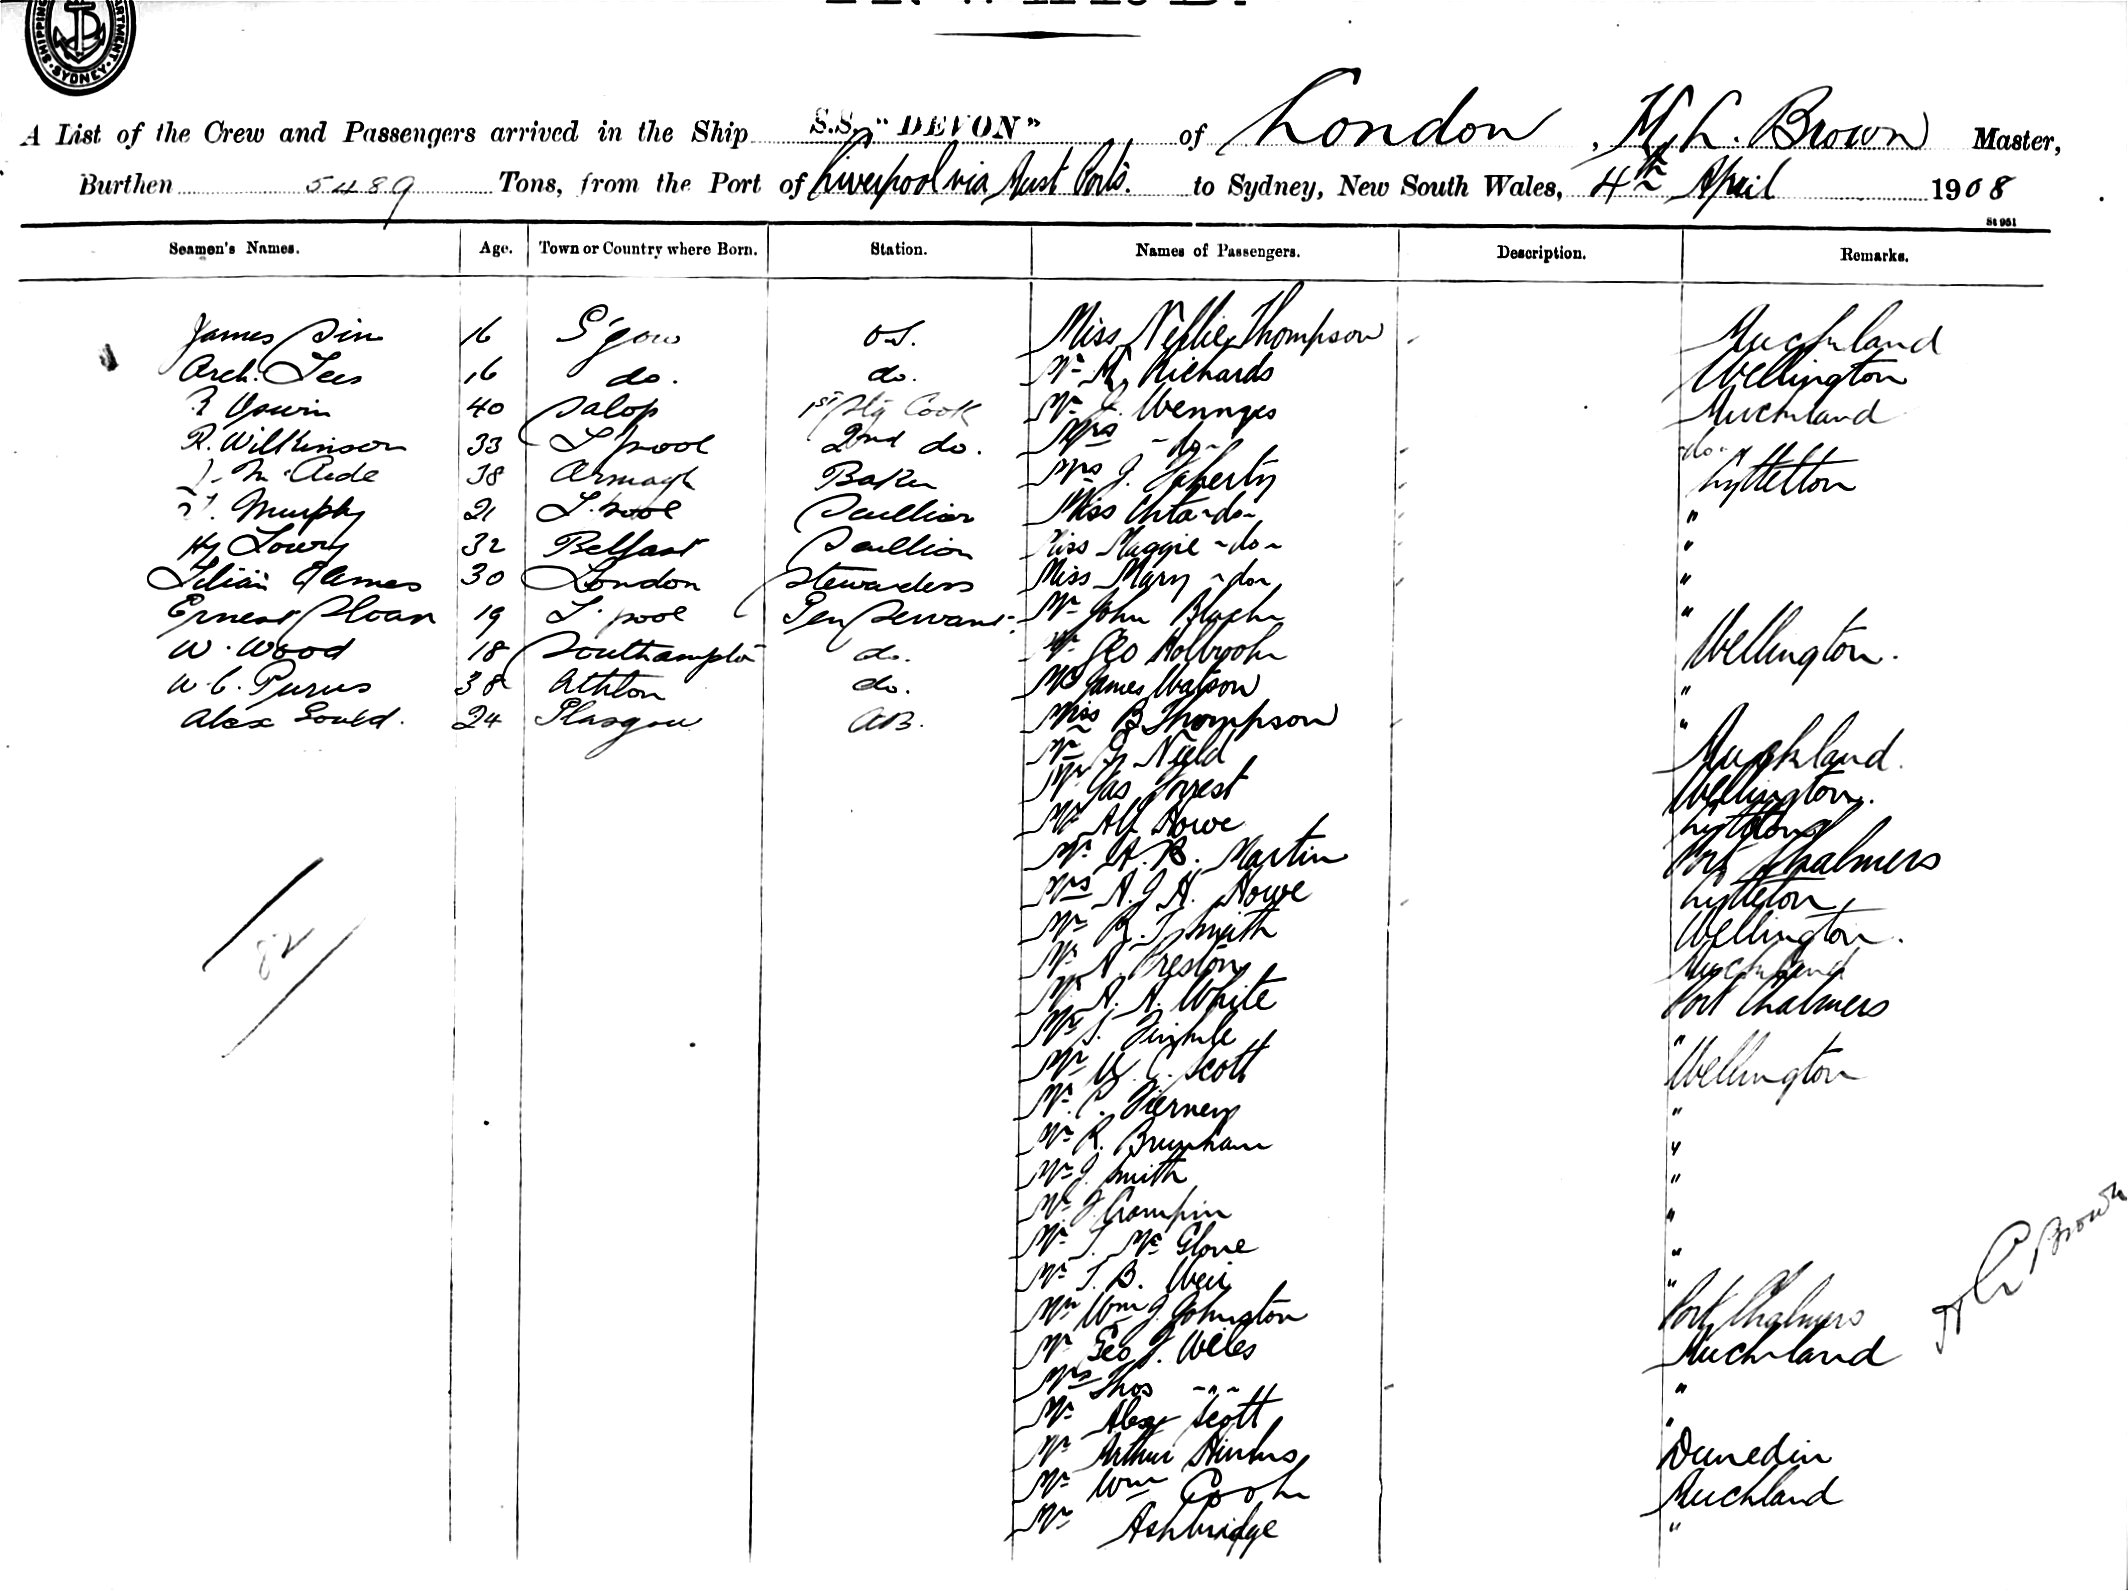 SHIPPING DEPARTMENT SYDNEY
INWARD.
A List of the Crew and Passengers arrived in the Ship S.S. "DEVON" of London, H. C. Brown Master,
Burthen 5489 Tons, from the Port of Liverpool via Aust Ports. to Sydney, New South Wales, 4th April 1908
St 951
Seamen's Names. Age. Town or Country where Born. Station. Names of Passengers. Description. Remarks.
James Sim 16 G'gow O.S. Miss Nellie Thompson Auckland
Arch. Lees 16 do. do. Mr H. Richards Wellington
40 Salop 1st Cook Mr Auckland
R. Wilkinson 33 L'pool 2nd do. Mrs -do- -do-
38 Armagh Baker Mrs J. Lyttelton
Murphy 21 L'pool Scullion Miss -do- "
Hy Lowry 32 Belfast Scullion Miss Maggie -do- "
Lilian Eames 30 London Stewardess Miss Mary -do- "
Ernest Sloan 19 L'pool Gen Servant. Mr John "
W. Wood 18 Southampton do. Mr Geo Holbrook Wellington.
W. C. Purus 38 do. Mr James Watson "
Alex Gould. 24 Glasgow AB. Miss B Thompson "
Mr Nield Auckland.
Mr Jas Forrest Wellington.
Mr Alf Howe Lyttelton
Mr A. B. Martin Port Chalmers
Mrs A. J. H. Howe Lyttelton
Mr R. T. Smith Wellington.
Mr N. Preston Auckland
Mr A. A. White Port Chalmers
Mr "
Mr W. C. Scott Wellington
Mr C. Tierney "
Mr R. "
Mr J. Smith "
Mr "
Mr "
Mr T. B. Weir "
Mr Wm J. Johnston Port Chalmers
Mr Geo J. Wiles Auckland
Mrs Thos -"- "
Mr Alex Scott "
Mr Arthur Dunedin
Mr Wm Cook Auckland
Mr Ashbridge "
82
H C Brown